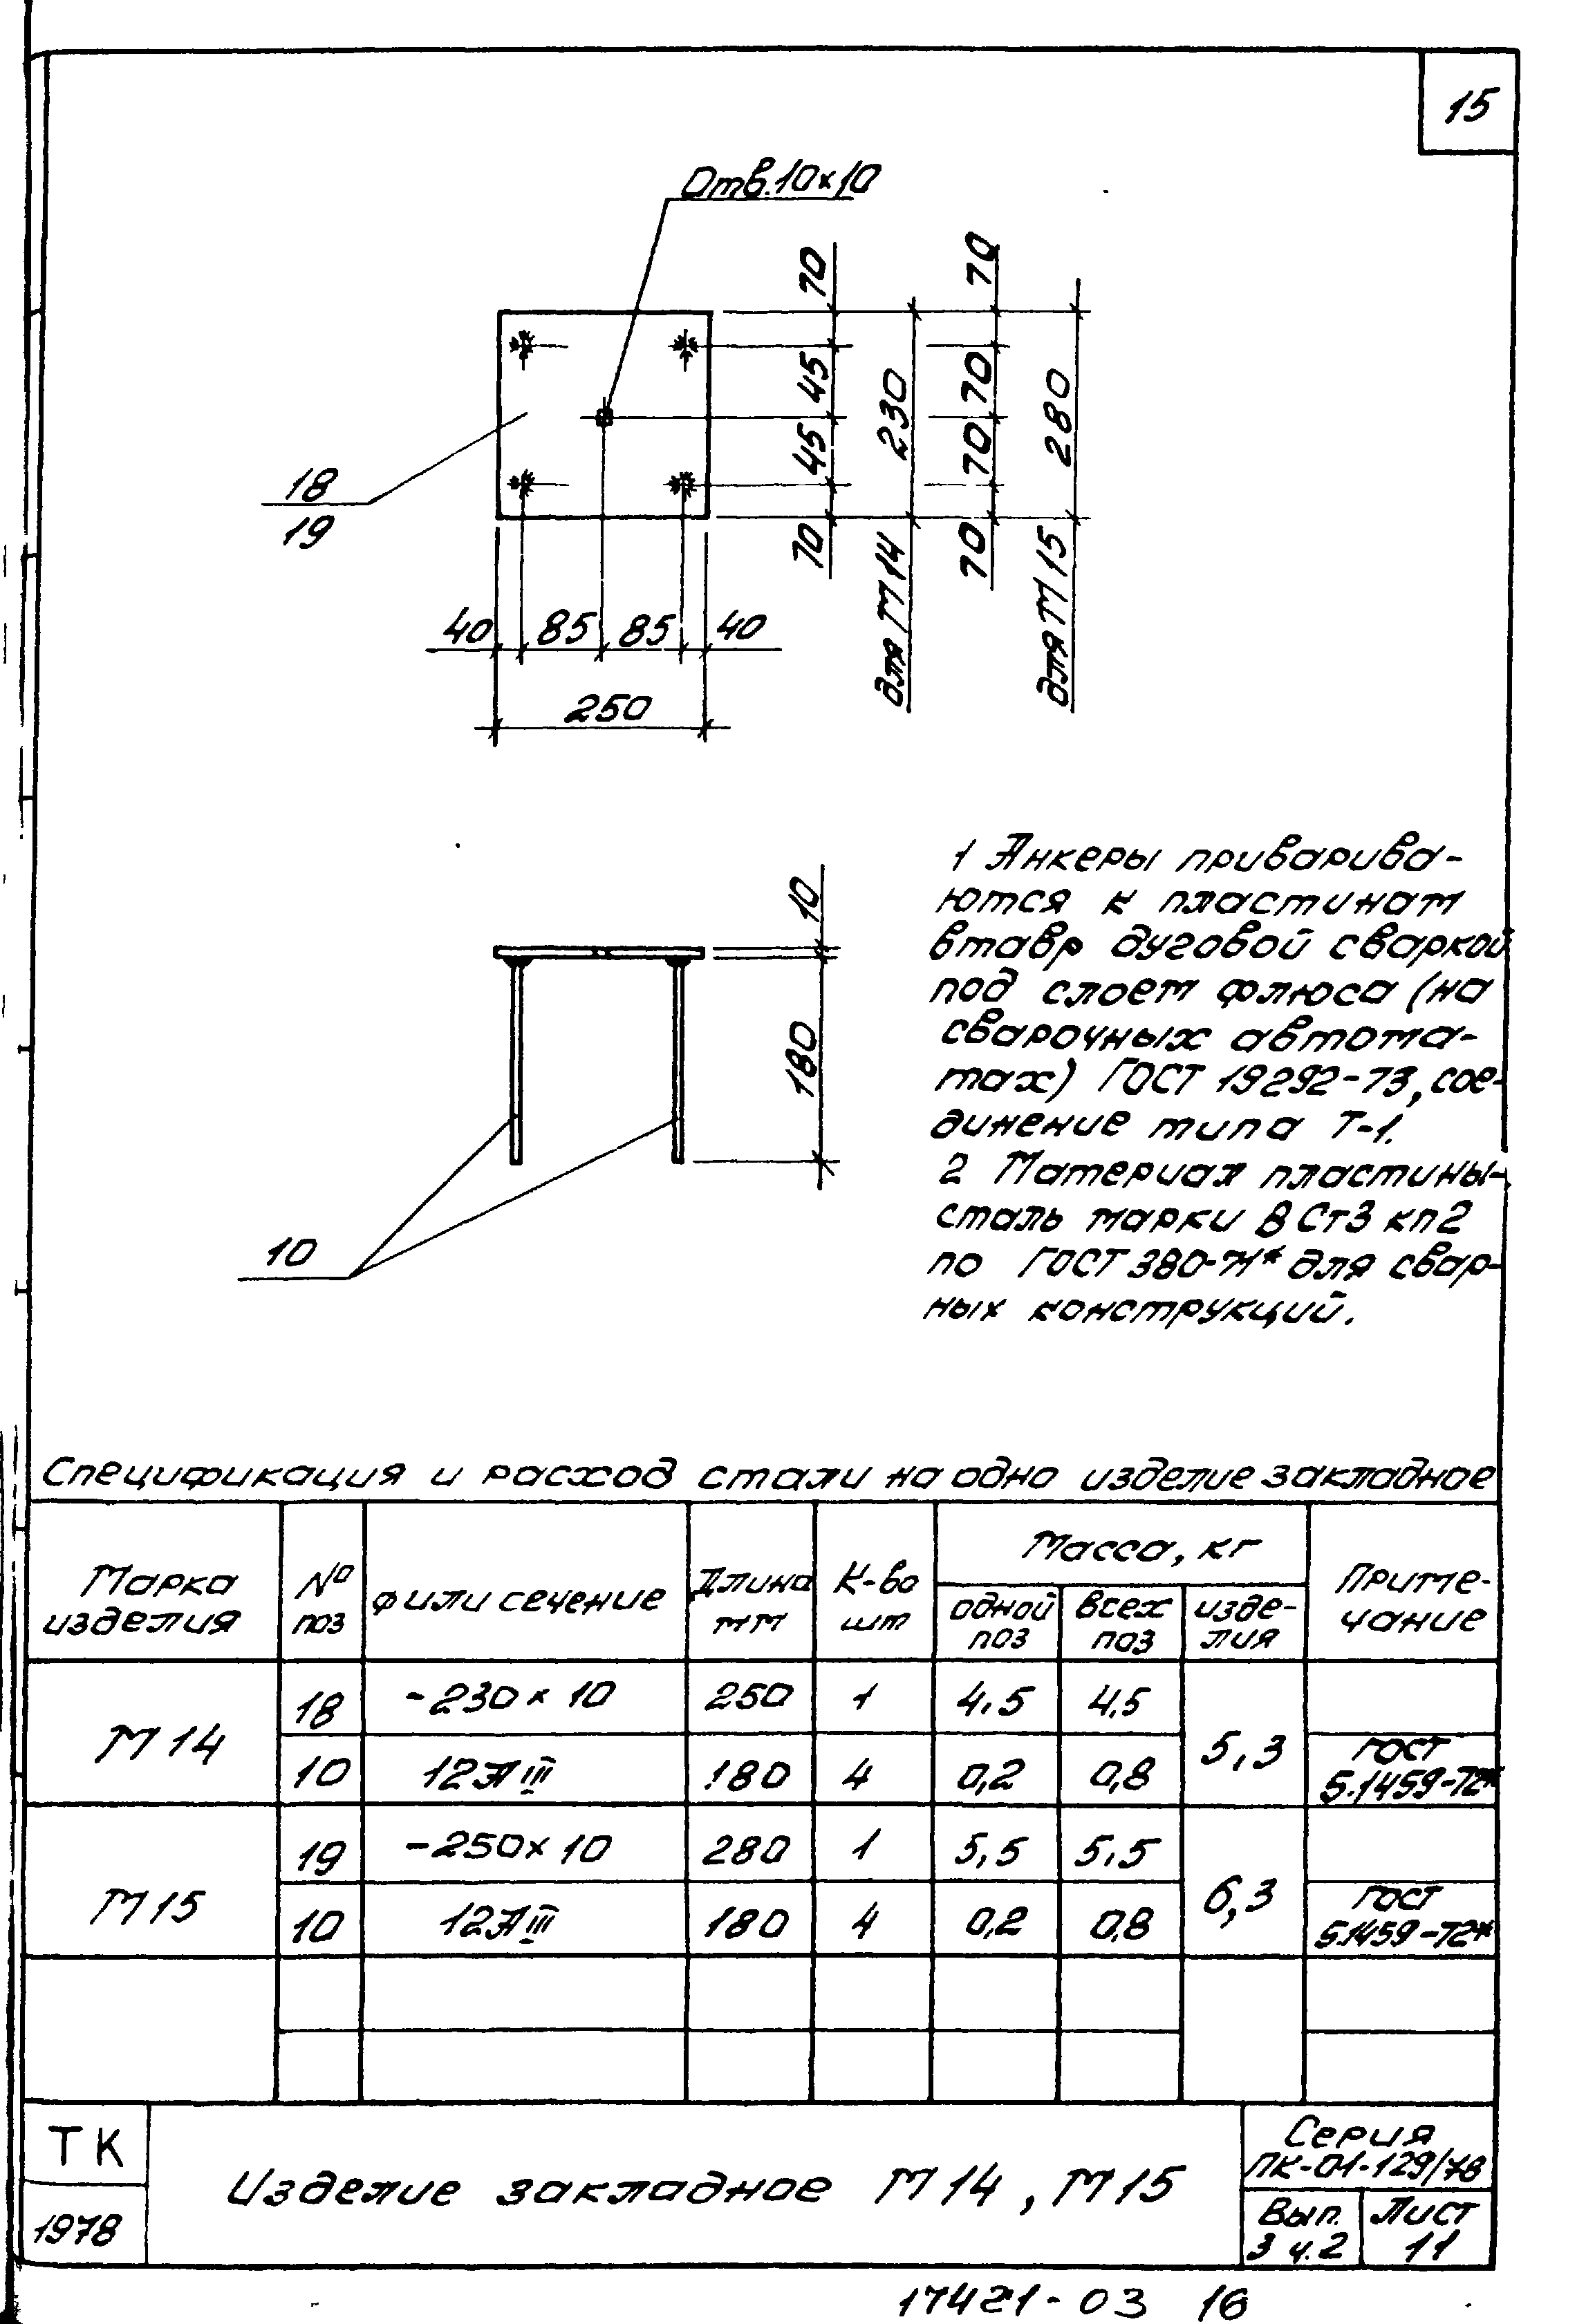 15
Отв.10×10
70
45
45
70
230
для М14
70
70
70
70
280
для М15
18
19
40 85 85 40
250
10
180
10
1 Анкеры приварива-
ются к пластинам
втавр дуговой сваркой
под слоем флюса (на
сварочных автома-
тах) ГОСТ 19292-73, сое-
динение типа Т-1.
2 Материал пластины-
сталь марки ВСт3кп2
по ГОСТ 380-71* для свар-
ных конструкций.
Спецификация и расход стали на одно изделие закладное
Марка изделия № поз Ф или сечение Длина мм К-во шт Масса, кг Приме-чание
одной поз всех поз изде-лия
М14 18 -230×10 250 1 4,5 4,5 5,3
10 12АIII 180 4 0,2 0,8 ГОСТ 5.1459-72*
М15 19 -250×10 280 1 5,5 5,5 6,3
10 12АIII 180 4 0,2 0,8 ГОСТ 5.1459-72*
ТК
1978
Изделие закладное М14, М15
Серия
ПК-01-129/78
Вып. 3 ч.2
Лист 11
17421-03 16